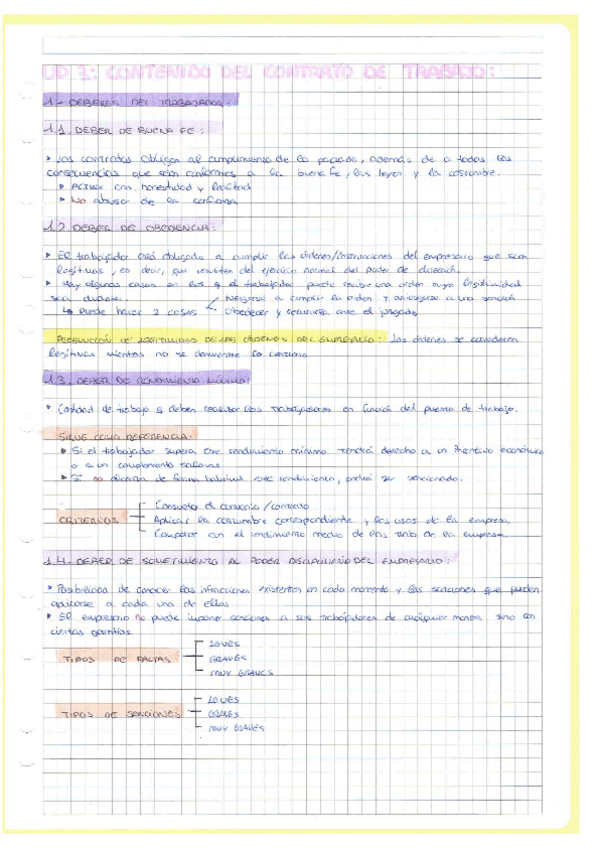 UD 7: CONTENIDO DEL CONTRATO DE TRABAJO:
1.- DEBERES DEL TRABAJADOR:
1.1. DEBER DE BUENA FE:
• Los contratos obligan al cumplimiento de lo pactado, además de a todas las
consecuencias que sean conformes a la buena fe, las leyes y la costumbre.
• Actuar con honestidad y lealtad
• No abusar de la confianza
1.2. DEBER DE OBEDIENCIA:
• El trabajador está obligado a cumplir las órdenes/instrucciones del empresario que sean
legítimas, es decir, que resulten del ejercicio normal del poder de dirección.
• Hay algunos casos en los q el trabajador puede recibir una orden cuya legitimidad
sea dudosa.
↳ Puede hacer 2 cosas
Negarse a cumplir la orden y arriesgarse a una sanción
Obedecer y recurrirla ante el juzgado
PRESUNCIÓN DE LEGITIMIDAD DE LAS ÓRDENES DEL EMPRESARIO: Las órdenes se consideran
legítimas mientras no se demuestre lo contrario
1.3. DEBER DE RENDIMIENTO MÍNIMO:
• Cantidad de trabajo q deben realizar los trabajadores en función del puesto de trabajo.
SIRVE COMO REFERENCIA:
• Si el trabajador supera ese rendimiento mínimo tendrá derecho a un incentivo económico
o a un complemento
• Si no alcanza de forma habitual ese rendimiento, podrá ser sancionado.
CRITERIOS
Consultar el convenio/contrato
Aplicar la costumbre correspondiente y los usos de la empresa
Comparar con el rendimiento medio de los de la empresa
1.4. DEBER DE SOMETIMIENTO AL PODER DISCIPLINARIO DEL EMPRESARIO:
• Posibilidad de conocer las infracciones existentes en cada momento y las sanciones que pueden
aplicarse a cada una de ellas
• El empresario no puede imponer sanciones a sus trabajadores de cualquier manera, sino con
ciertas garantías.
TIPOS DE FALTAS
LEVES
GRAVES
MUY GRAVES
TIPOS DE SANCIONES
LEVES
GRAVES
MUY GRAVES